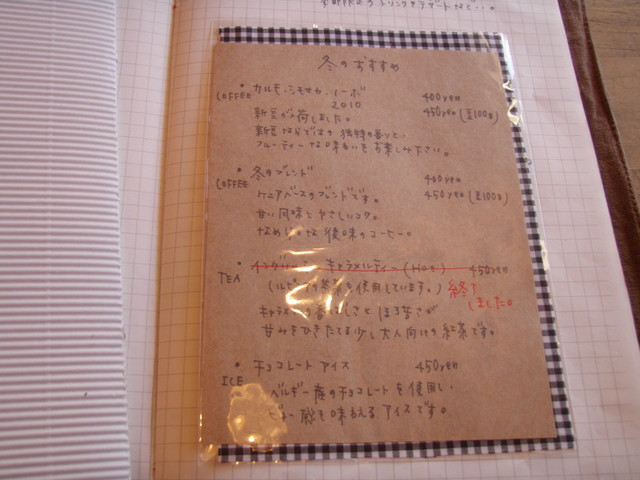 冬のおすすめ
COFFEE
• カルモ・シモサカ・ヌーボ 400yen
2010 450yen (豆100g)
新豆が入荷しました。
新豆ならではの独特の香りと、
フルーティーな味わいをお楽しみ下さい。
COFFEE
• 冬のブレンド 400yen
ケニアベースのブレンドです。 450yen (豆100g)
甘い風味とやさしいコク。
なめらかな後味のコーヒー。
TEA
• キャラメルティー (Hot) 450yen
茶葉を使用しています。) 終了
しました。
キャラメルの香ばしさとほろ苦さが
甘みをひきたてる少し大人向けの紅茶です。
ICE
• チョコレートアイス 450yen
ベルギー産のチョコレートを使用し、
味わえるアイスです。